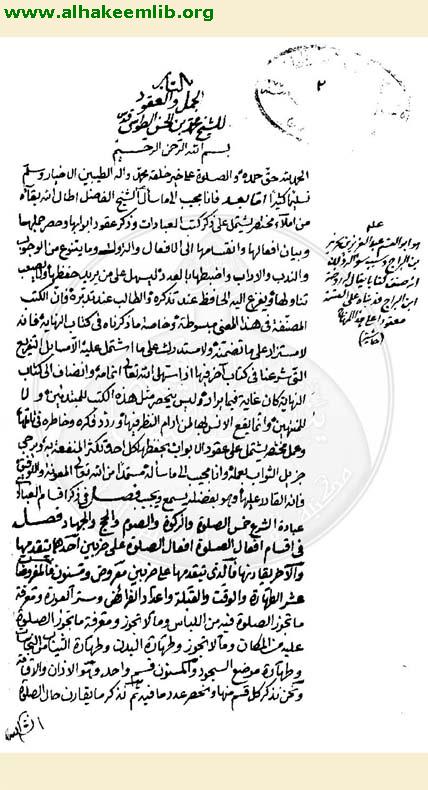 www.alhakeemlib.org
كتاب
الجمل والعقود
للشيخ محمد بن الحسن الطوسي
بسم الله الرحمن الرحيم
الحمد لله حق حمده والصلوة على خير خلقه محمد وآله الطيبين الاخيار وسلم
تسليما كثيرا اما بعد فانا مجيب الى ما سأل الشيخ الفاضل اطال الله بقاه
من املاء مختصر يشتمل على ذكر كتب العبادات وذكر عقود ابوابها وحصر جملها
وبيان افعالها وانقسامها الى الافعال والتروك وما يتنوع من الوجوب
والندب والاداب واضبطها بالعدد ليسهل على من يريد حفظها
تناولها ويفزع اليه الحافظ عند تذكره والطالب عند تدبره فان الكتب
المصنفة في هذا المعنى مبسوطة وخاصة ما ذكرناه في كتاب النهاية فانه
لا مستزاد على ما تضمنه ولا مستدرك على ما اشتمل عليه الا مسائل التفريع
التي شرعنا في كتاب آخر فيها اذا سهل الله تعالى اتمامه وانضاف الى كتاب
النهاية كان غاية فيما يراد وليس ينحصر مثل هذه الكتب للمبتدئين ولا
للمنتهين وانما يقع الانس بها لمن ادام النظر فيها وردد فكره وخاطره في تاملها
وعمل مختصر يشتمل على عقود الابواب يحفظها كل احد تكثر المنفعة به ويرجى
جزيل الثواب بعمله وانا مجيب الى ما سأله مستمدا من الله تعالى المعونة والتوفيق
فانه القادر عليهما وهو بفضله يسمع ويجيب فصل في ذكر اقسام العبادات
عبادة الشرع خمس الصلوة والزكوة والصوم والحج والجهاد فصل
في اقسام افعال الصلوة افعال الصلوة على ضربين احدهما يتقدمها
والآخر يقارنها فالذي يتقدمها على ضربين مفروض ومسنون فالمفروض
عشر الطهارة والوقت والقبلة واعداد الفرائض وستر العورة ومعرفة
ما تجوز الصلوة فيه من اللباس وما لا تجوز ومعرفة ما تجوز الصلوة
عليه من المكان وما لا تجوز وطهارة البدن وطهارة الثياب من النجاسات
وطهارة موضع السجود والمسنون قسم واحد وهو الاذان والاقامة
ونحن نذكر كل قسم منها ونحصر عدد ما فيه ثم نذكر ما يقارن حال الصلوة
٢
هو ابو القسم عبد العزيز بن نحرير
بن البراج